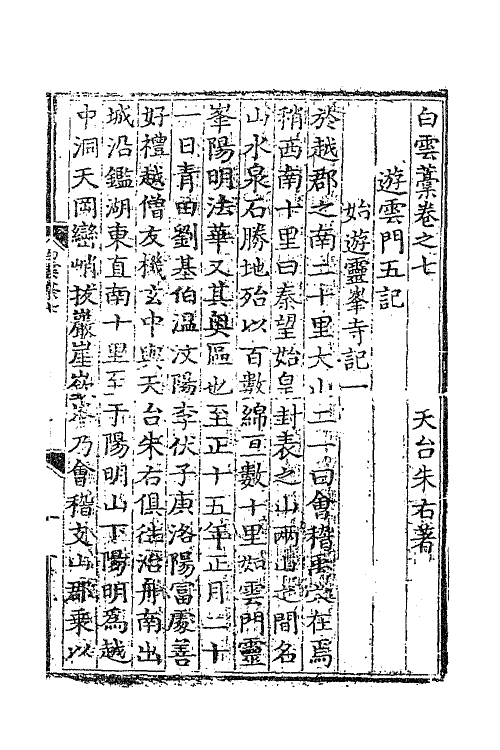 白雲藁卷之七
天台朱右著
遊雲門五記
始遊靈峯寺記一
於越郡之南三十里大山二一曰會稽禹穴在焉
稍西南十里曰秦望始皇封表之山兩山之間名
山水泉石勝地殆以百數綿亘數十里如雲門靈
峯陽明法華又其奥區也至正十五年正月二十
一日青田劉基伯溫汶陽李伏子庚洛陽富慶善
好禮越僧友機玄中與天台朱右俱往沿舟南出
城沿鑑湖東直南十里至于陽明山下陽明爲越
中洞天岡巒峭拔巖崖乃會稽支山郡乗以